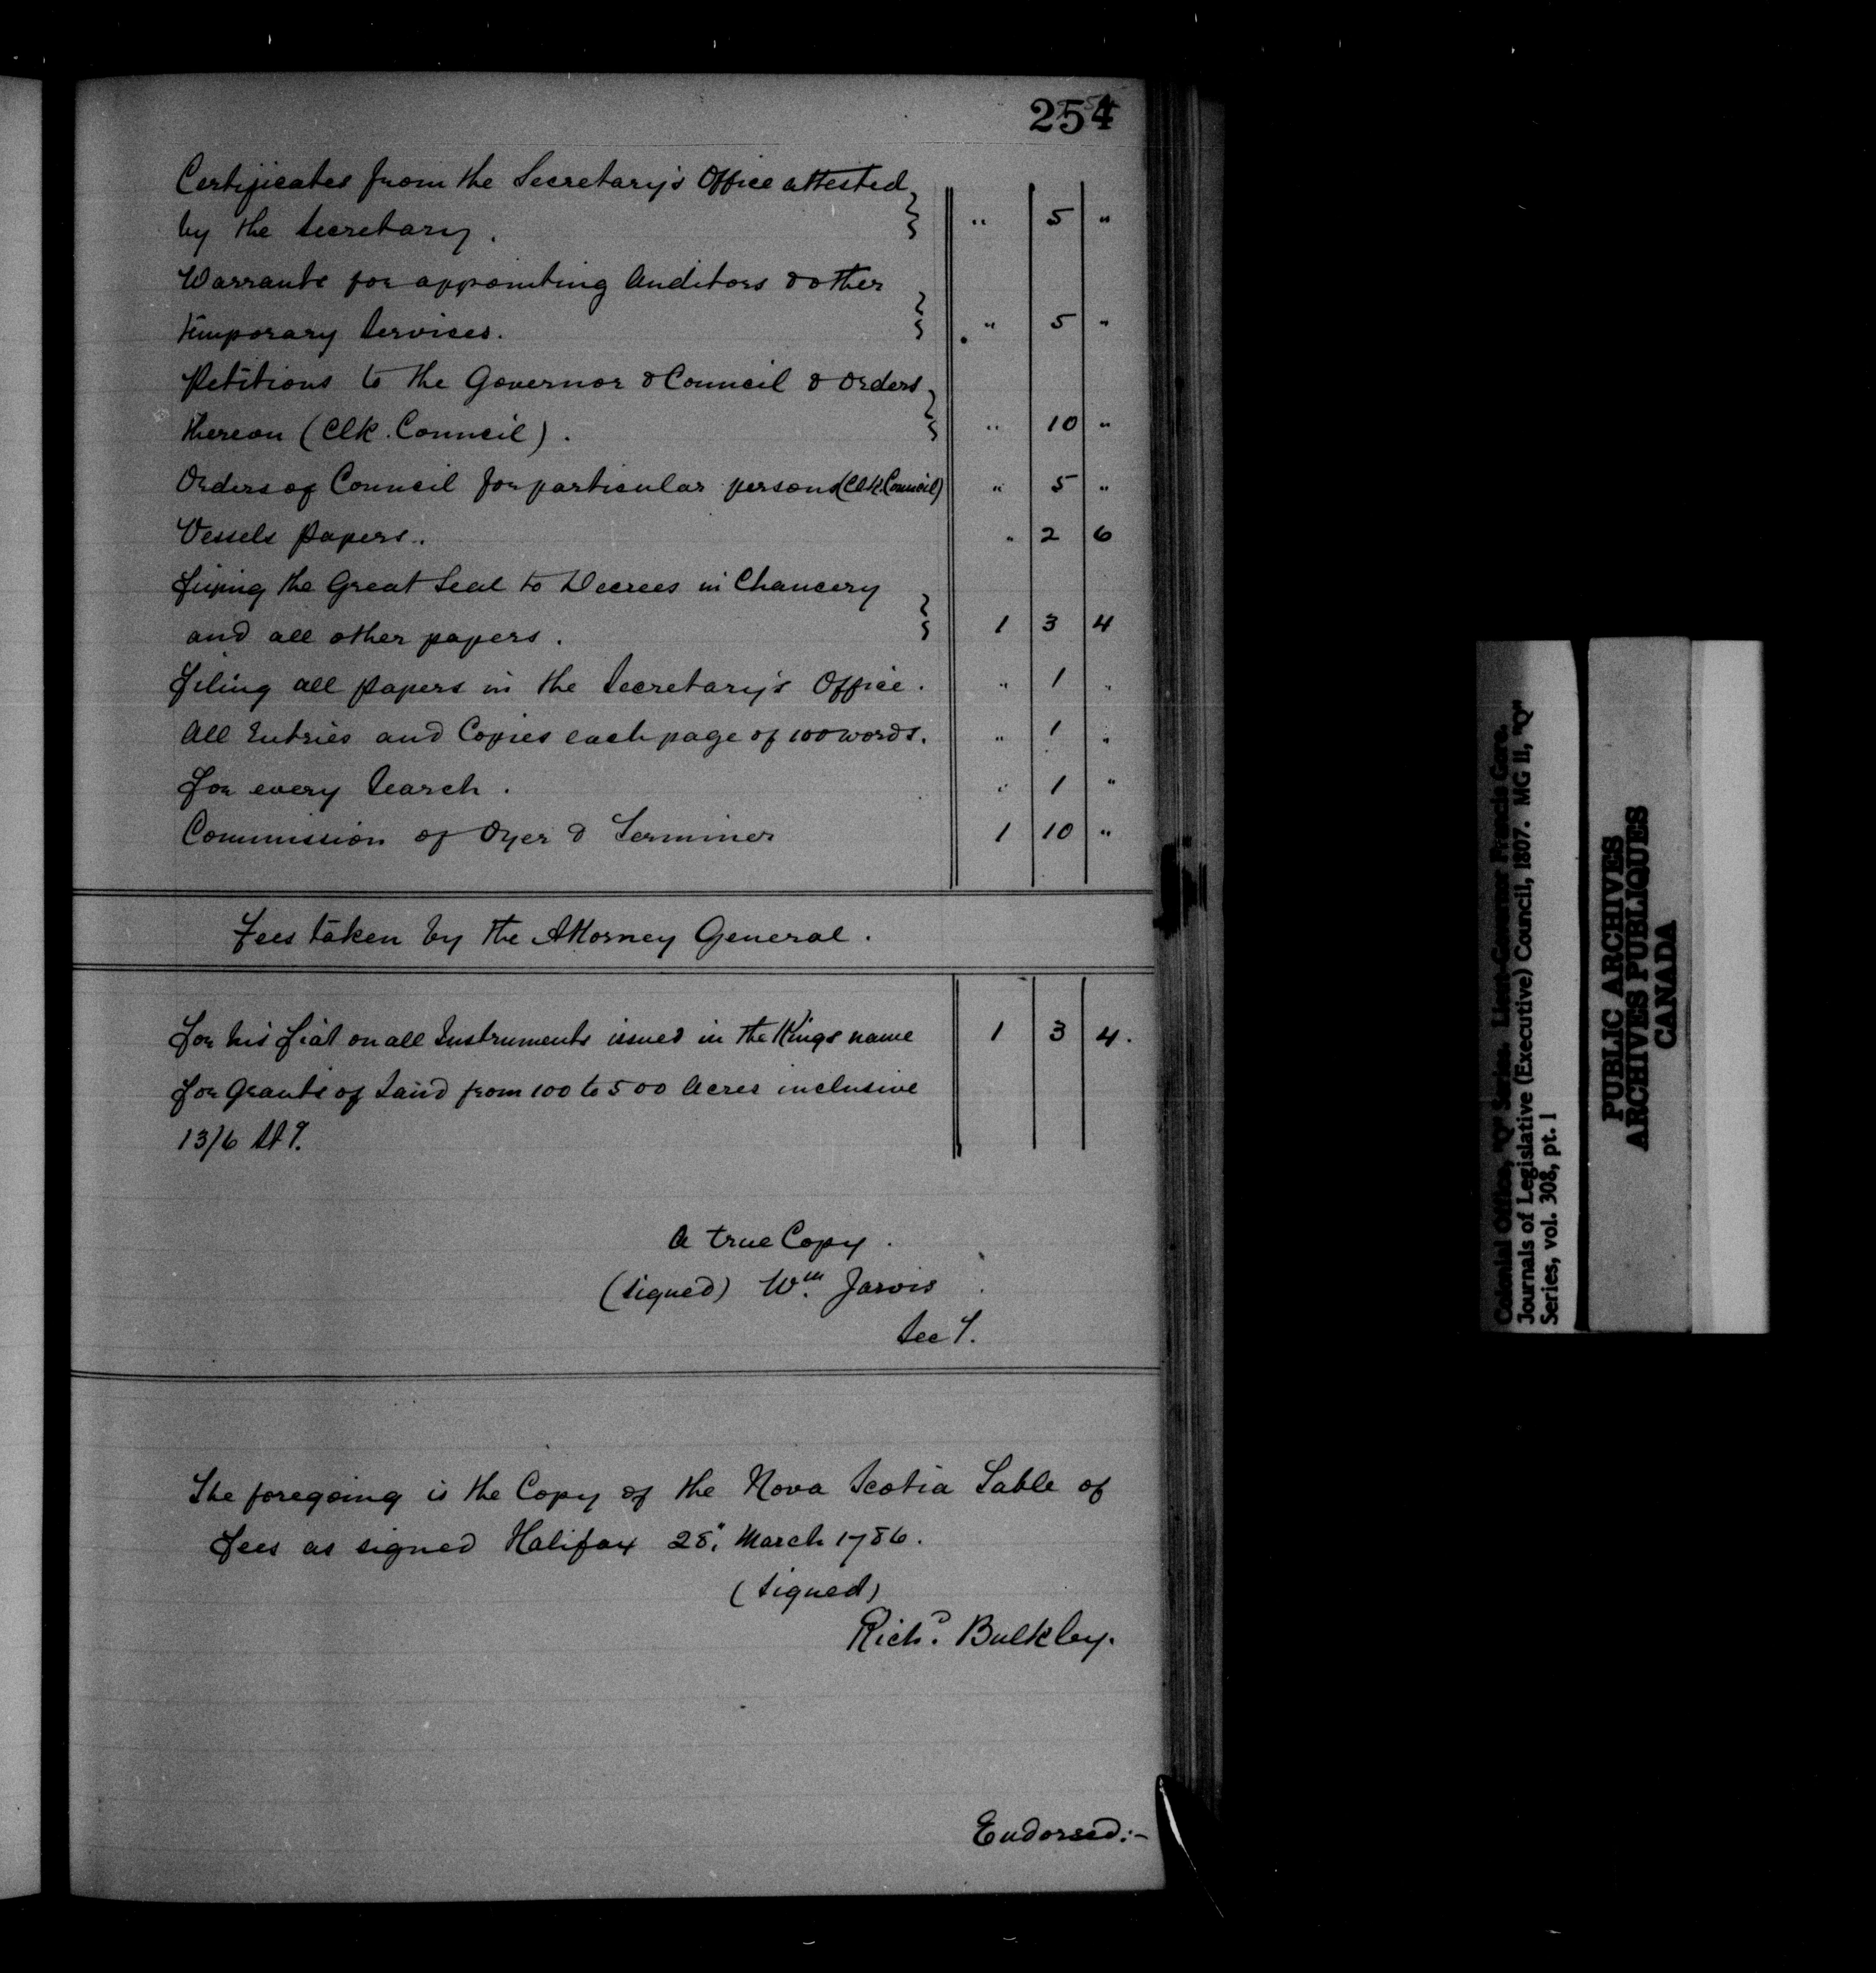 254
Certificates from the Secretary's Office attested
by the Secretary. " 5 "
Warrants for appointing Auditors & other
temporary Services. " 5 "
Petitions to the Governor & Council & Orders
thereon (Clk. Council). " 10 "
Orders of Council for particular persons (Clk. Council) " 5 "
Vessels papers. " 2 6
Fixing the Great Seal to Decrees in Chancery
and all other papers. 1 3 4
Filing all papers in the Secretary's Office. " 1 "
All Entries and Copies each page of 100 words. " 1 "
For every Search. " 1 "
Commission of Oyer & Terminer 1 10 "
Fees taken by the Attorney General.
For his fiat on all Instruments issued in the Kings name 1 3 4.
For Grants of Land from 100 to 500 Acres inclusive
13/6 St g.
A true Copy.
(signed) Wm. Jarvis
Sec y.
The foregoing is the Copy of the Nova Scotia Table of
Fees as signed Halifax 28" March 1786.
(signed)
Richd. Bulkley.
Endorsed:-
Colonial Office, "Q" Series. Lieut-Governor Francis Gore.
Journals of Legislative (Executive) Council, 1807. MG II, "Q"
Series, vol. 308, pt. 1
PUBLIC ARCHIVES
ARCHIVES PUBLIQUES
CANADA